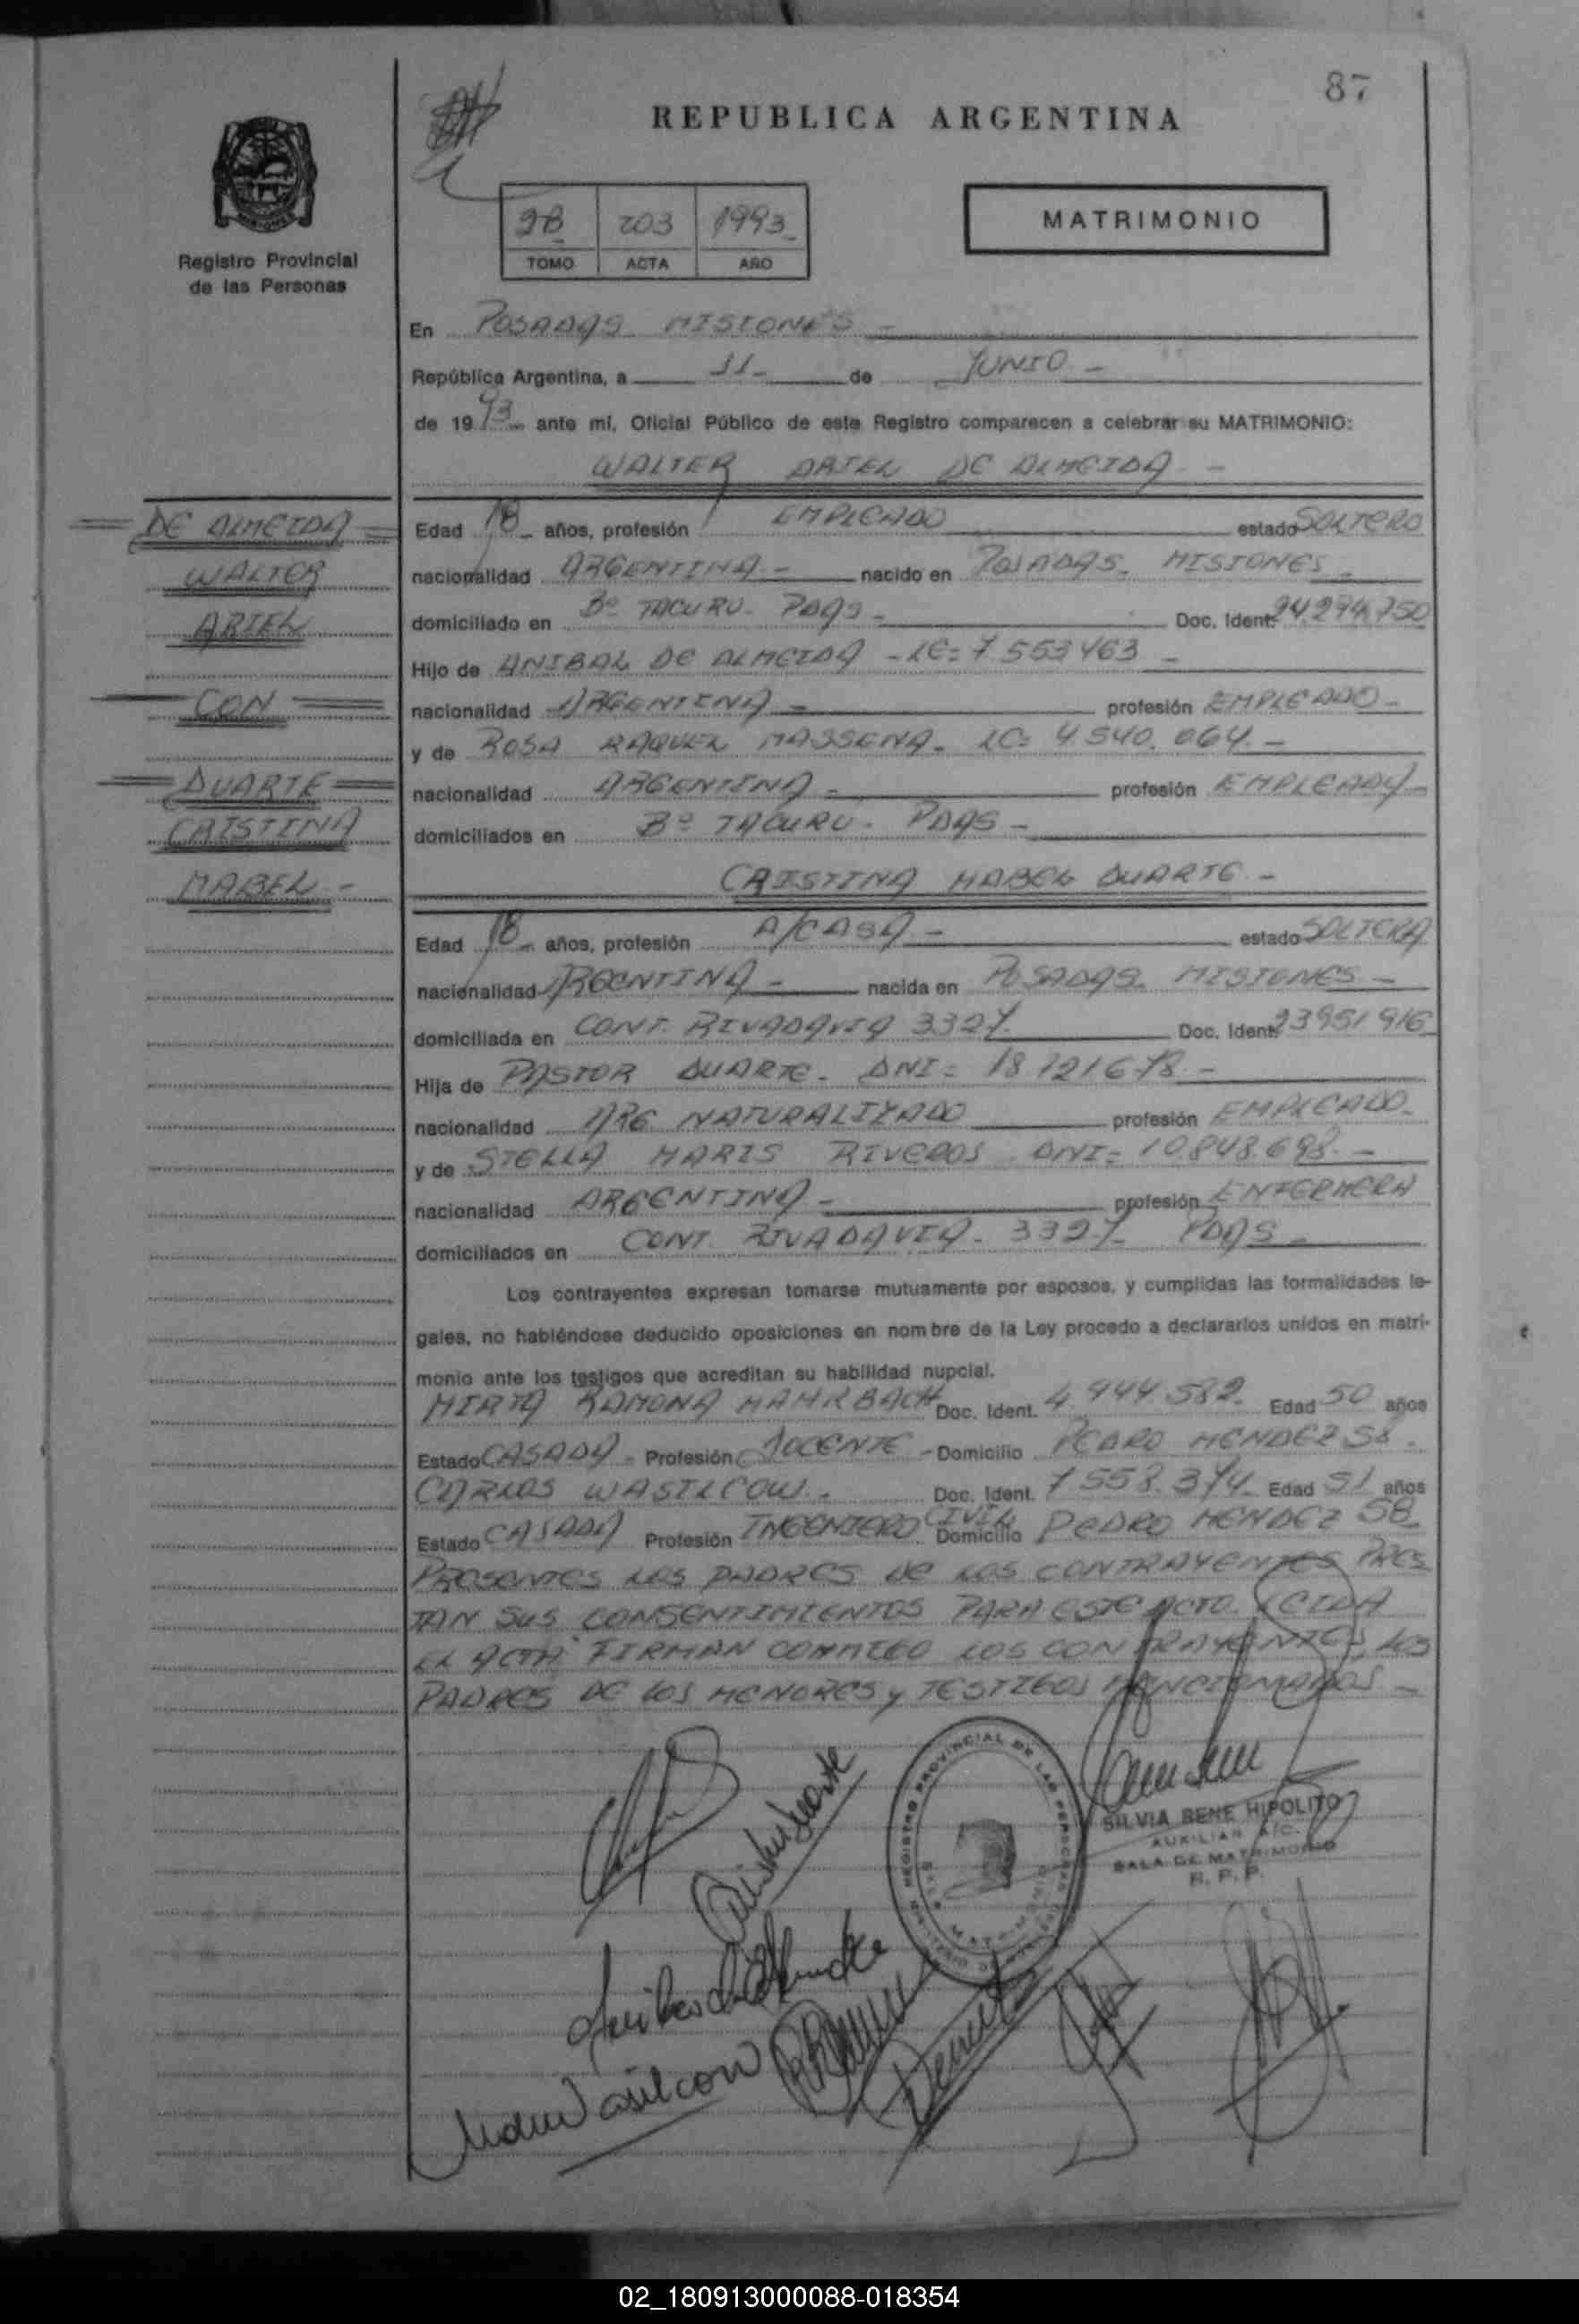 87
REPUBLICA ARGENTINA
Registro Provincial
de las Personas
2B 203 1993
TOMO ACTA AÑO
MATRIMONIO
En POSADAS MISIONES -
República Argentina, a 11- de JUNIO -
de 1993 ante mí, Oficial Público de este Registro comparecen a celebrar su MATRIMONIO:
WALTER ARIEL DE ALMEIDA -
DE ALMEIDA
WALTER
ARIEL
CON
DUARTE
CRISTINA
MABEL -
Edad 18 años, profesión EMPLEADO estado SOLTERO
nacionalidad ARGENTINA - nacido en POSADAS - MISIONES -
domiciliado en Bº TACURU - PDAS - Doc. Ident. 24.294.750
Hijo de ANIBAL DE ALMEIDA - LE= 7.553463 -
nacionalidad ARGENTINA - profesión EMPLEADO -
y de ROSA RAQUEL MASSENA - LC= 4.540.064 -
nacionalidad ARGENTINA - profesión EMPLEADA -
domiciliados en Bº TACURU - PDAS -
CRISTINA MABEL DUARTE -
Edad 18 años, profesión A/CASA - estado SOLTERA
nacionalidad ARGENTINA - nacida en POSADAS - MISIONES -
domiciliada en CONT. RIVADAVIA 3327 Doc. Ident. 23951916
Hija de PASTOR DUARTE - DNI= 18.121678 -
nacionalidad ARG NATURALIZADO profesión EMPLEADO -
y de STELLA MARIS RIVEROS DNI= 10.848.698 -
nacionalidad ARGENTINA - profesión ENFERMERA
domiciliados en CONT. RIVADAVIA - 3327 - PDAS -
Los contrayentes expresan tomarse mutuamente por esposos, y cumplidas las formalidades le-
gales, no habiéndose deducido oposiciones en nombre de la Ley procedo a declararlos unidos en matri-
monio ante los testigos que acreditan su habilidad nupcial.
MIRTA RAMONA HAHRBACH Doc. Ident. 4.944.582 Edad 50 años
Estado CASADA - Profesión DOCENTE - Domicilio PEDRO MENDEZ 58 -
CARLOS WASILCOW - Doc. Ident. 7.558.374 Edad 51 años
Estado CASADA Profesión INGENIERO CIVIL Domicilio PEDRO MENDEZ 58
PRESENTES LOS PADRES DE LOS CONTRAYENTES PRES
TAN SUS CONSENTIMIENTOS PARA ESTE ACTO. LEIDA
EL ACTA FIRMAN CONMIGO LOS CONTRAYENTES, LOS
PADRES DE LOS MENORES y TESTIGOS MENCIONADOS -
REGISTRO PROVINCIAL DE LAS PERSONAS
SILVIA RENE HIPOLITO
AUXILIAR A/C.
SALA DE MATRIMONIO
R. P. P.
02_180913000088-018354